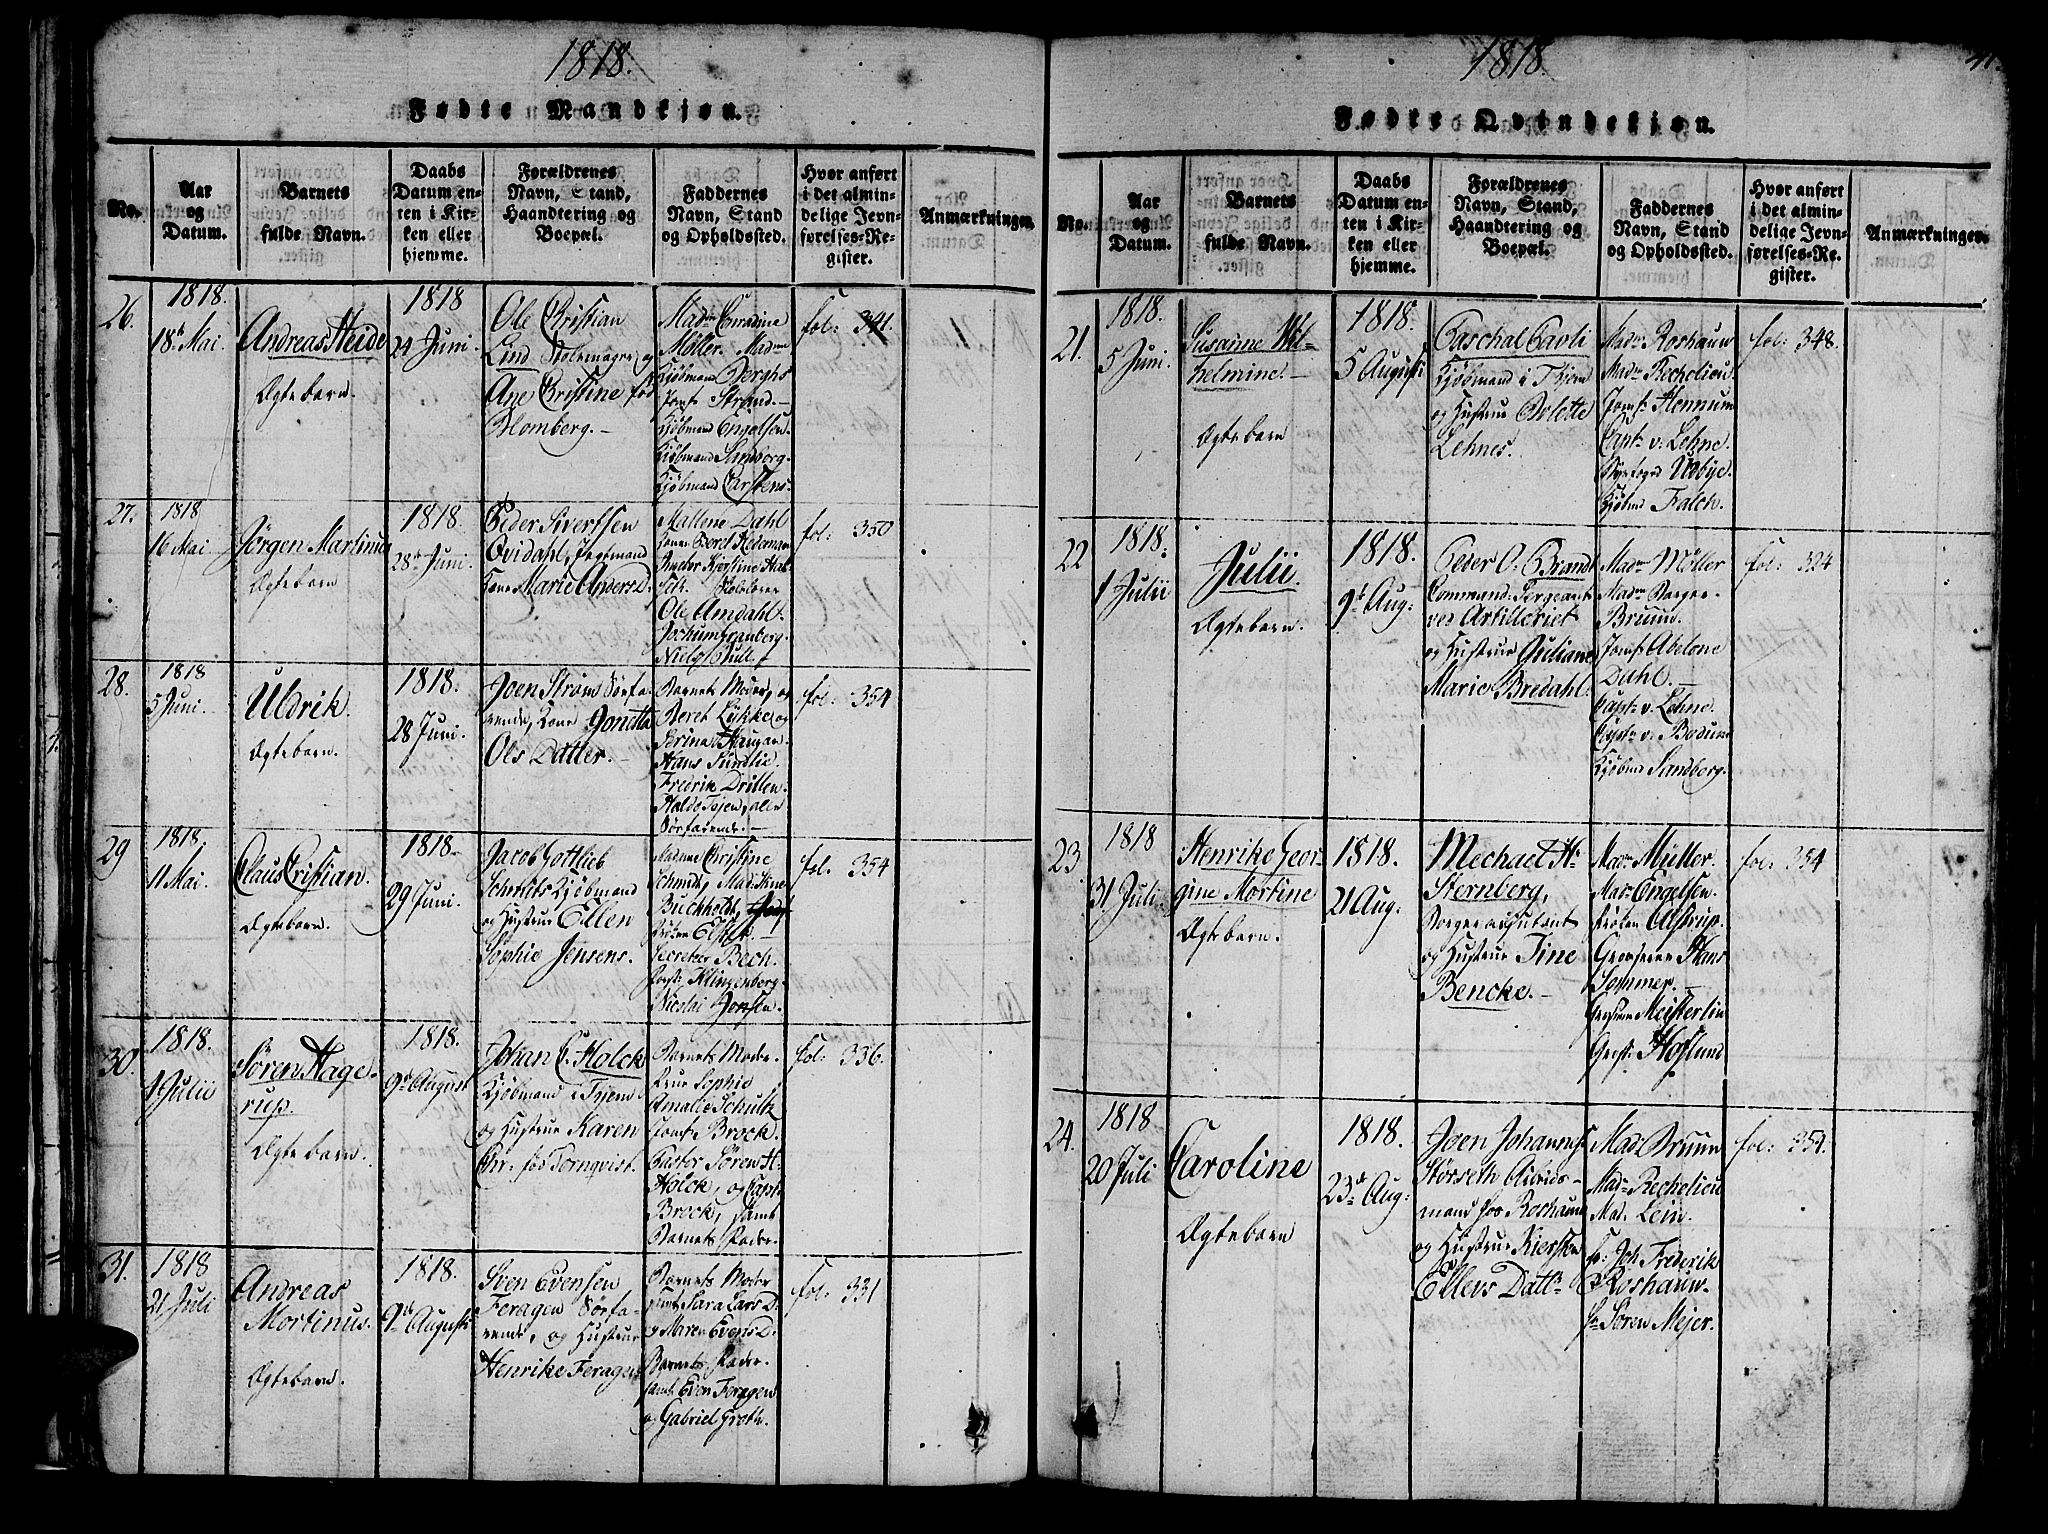 1818.
Fødte Mandkjøn.
No.
Aar
og
Datum.
Barnets
fulde Navn.
Daabs
Datum en-
ten i Kir-
ken eller
hjemme.
Forældrenes
Navn, Stand,
Haandtering og
Boepæl.
Faddernes
Navn, Stand
og Opholdssted.
Hvor anført
i det almin-
delige Jevn-
førelses-Re-
gister.
Anmærkninger.
26.
1818.
18de Mai.
Andreas Heide
Ægtebarn.
1818
24 Juni.
Ole Cristian
Lind
Ane Cristine fød
Blomberg.
Madme Conradine
Møller. Madme
Kjøbmand Berghs
Jomf. Strand.
Kjøbmand Engelsen.
Kjøbmand
Kjøbmand Carstens.
fol: 341.
27.
1818
16 Mai
Jørgen Martinus
Ægtebarn
1818.
28de Juni.
Peder Sivertsen
Qvidahl,
Kone Marie Anders D.
Mallene Dahl
Ole Amdahl.
Niels Bull
fol: 350
28.
1818
5 Juni.
Uldrik.
Ægtebarn.
1818.
28 Juni.
Joen Strøm Sørfa-
rende, Kone Jonetta
Ols Datter.
Barnets Moder, og
Beret Lykke, og
Serina Haugan.
Hans Sundlie.
Fredrik Drillen.
Sørfarende.
fol: 354
29
1818.
11 Mai.
Claus Cristian.
Ægtebarn.
1818.
29 Juni.
Jacob Gottlieb
Schmidt Kjøbmand
og Hustrue Ellen
Sophie Jensens.
Madme Cristine
Schmidt,
Buchholdt,
Secretær Bech.
Klingenberg.
Nicolai Jensen.
fol: 354
30.
1818.
1 Julii
Søren Hage-
rup.
Ægtebarn.
1818.
9de August
Johan C. Holck
Kjøbmand i Tjem
og Hustrue Karen
Chr. fød Tornqvist.
Barnets Moder.
Frue Sophie
Amalie Schultz
Jomf. Brock.
Pastor Søren H.
Holck, og Capt.
Brock, samt
Barnets Fader.
fol: 336.
31.
1818
21 Juli
Andreas
Mortinus.
Ægtebarn.
1818.
9de Augusti
Sven Evensen
Feragen Sørfa-
rende, og Hustrue
Henrike Feragen
Barnets Moder
samt Sara Lars D.
og Maren Evens D.
Barnets Fader.
samt Even Feragen
og Gabriel Groth.
fol: 331
1818.
41.
Fødte Qvindekjøn.
No.
Aar
og
Datum.
Barnets
fulde Navn.
Daabs
Datum en-
ten i Kir-
ken eller
hjemme.
Forældrenes
Navn, Stand,
Haandtering og
Boepæl.
Faddernes
Navn, Stand
og Opholdssted.
Hvor anført
i det almin-
delige Jevn-
førelses-Re-
gister.
Anmærkninger.
21.
1818.
5 Juni.
Susanne Wil-
helmine.
Ægtebarn
1818.
5 Augusti
Paschal Paoli
Kjøbmand i Thjem
og Hustrue Oelette
Lehnes.
Madme Roshauw
Madme Rechelieu.
Jomf. Hennum
Capt. v: Lehne.
Byefoged Usbye.
Kjøbmd Falch.
fol: 348.
22
1818.
1 Julii
Julii.
Ægtebarn.
1818.
9de Aug:
Peder O. Brandt
Command: Sergeant
ved Artilleriet
og Hustrue Juliane
Marie Bredahl.
Madme Møller
Madme Borger-
Bruun.
Jomf. Abelone
Dahl.
Capt. v: Lehne.
Capt. v: Bodum
Kjøbmd Sandborg.
fol: 324
23.
1818
31 Juli
Henrike Geor-
gine Mortine
Ægtebarn.
1818.
21 Aug:
Mechael H.
Sternberg,
Borger adjutant
og Hustrue Tine
Bencke.
Madme Müller.
Mad. Engelsen.
Frøken Alstrup.
Grosserer Hans
Sommer.
Meisterlin
Hoflund
fol: 354
24.
1818
20 Juli
Caroline
Ægtebarn.
1818.
23de Aug:
Joen Johannes.
Størseth Arbeids-
mand hos Roshauw
og Hustrue Kiersten
Ellevs Dattr
Mad: Bruun
Madme Rechelieu
Mad. Lein.
Joh. Frederik
Roshauw.
Søren Mejer.
fol: 351.